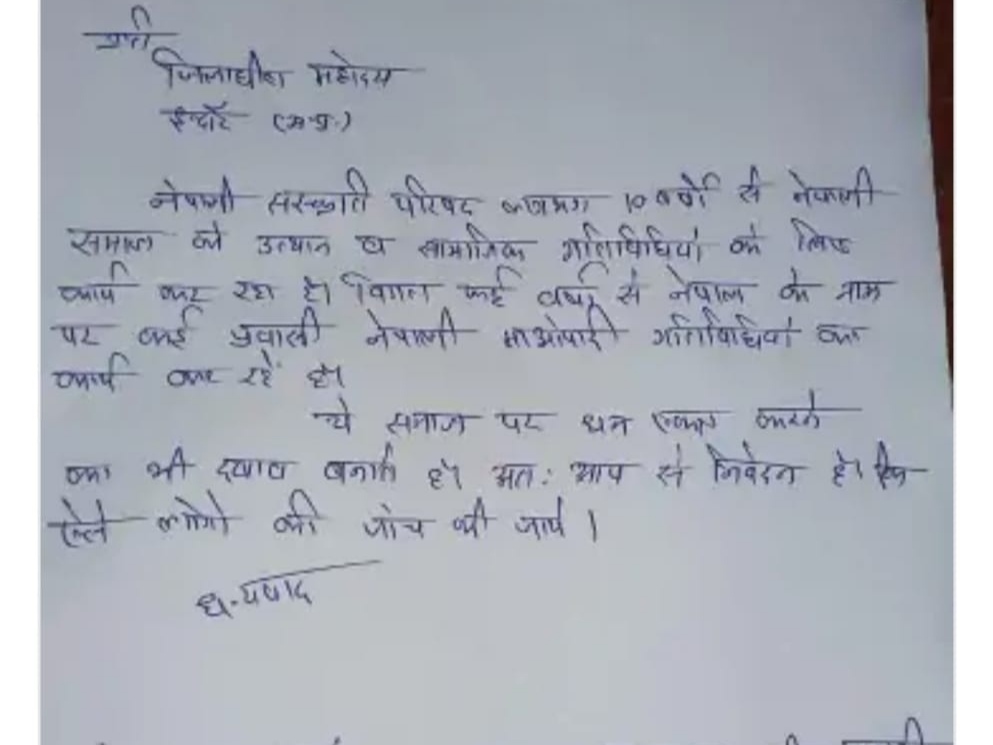 प्रति
जिलाधीश महोदय
इन्दौर (म.प्र.)
नेपाली संस्कृति परिषद लगभग १० वर्षो से नेपाली
समाज के उत्थान व सामाजिक गतिविधियों के लिए
कार्य कर रहा है। विगत कई वर्षो से नेपाल के नाम
पर कई प्रवासी नेपाली माओवादी गतिविधियों का
कार्य कर रहें है।
ये समाज पर धन एकत्र करने
का भी दबाव बनाते है। अत: आप से निवेदन है। कि
ऐसे लोगो की जांच की जाये।
धन्यवाद